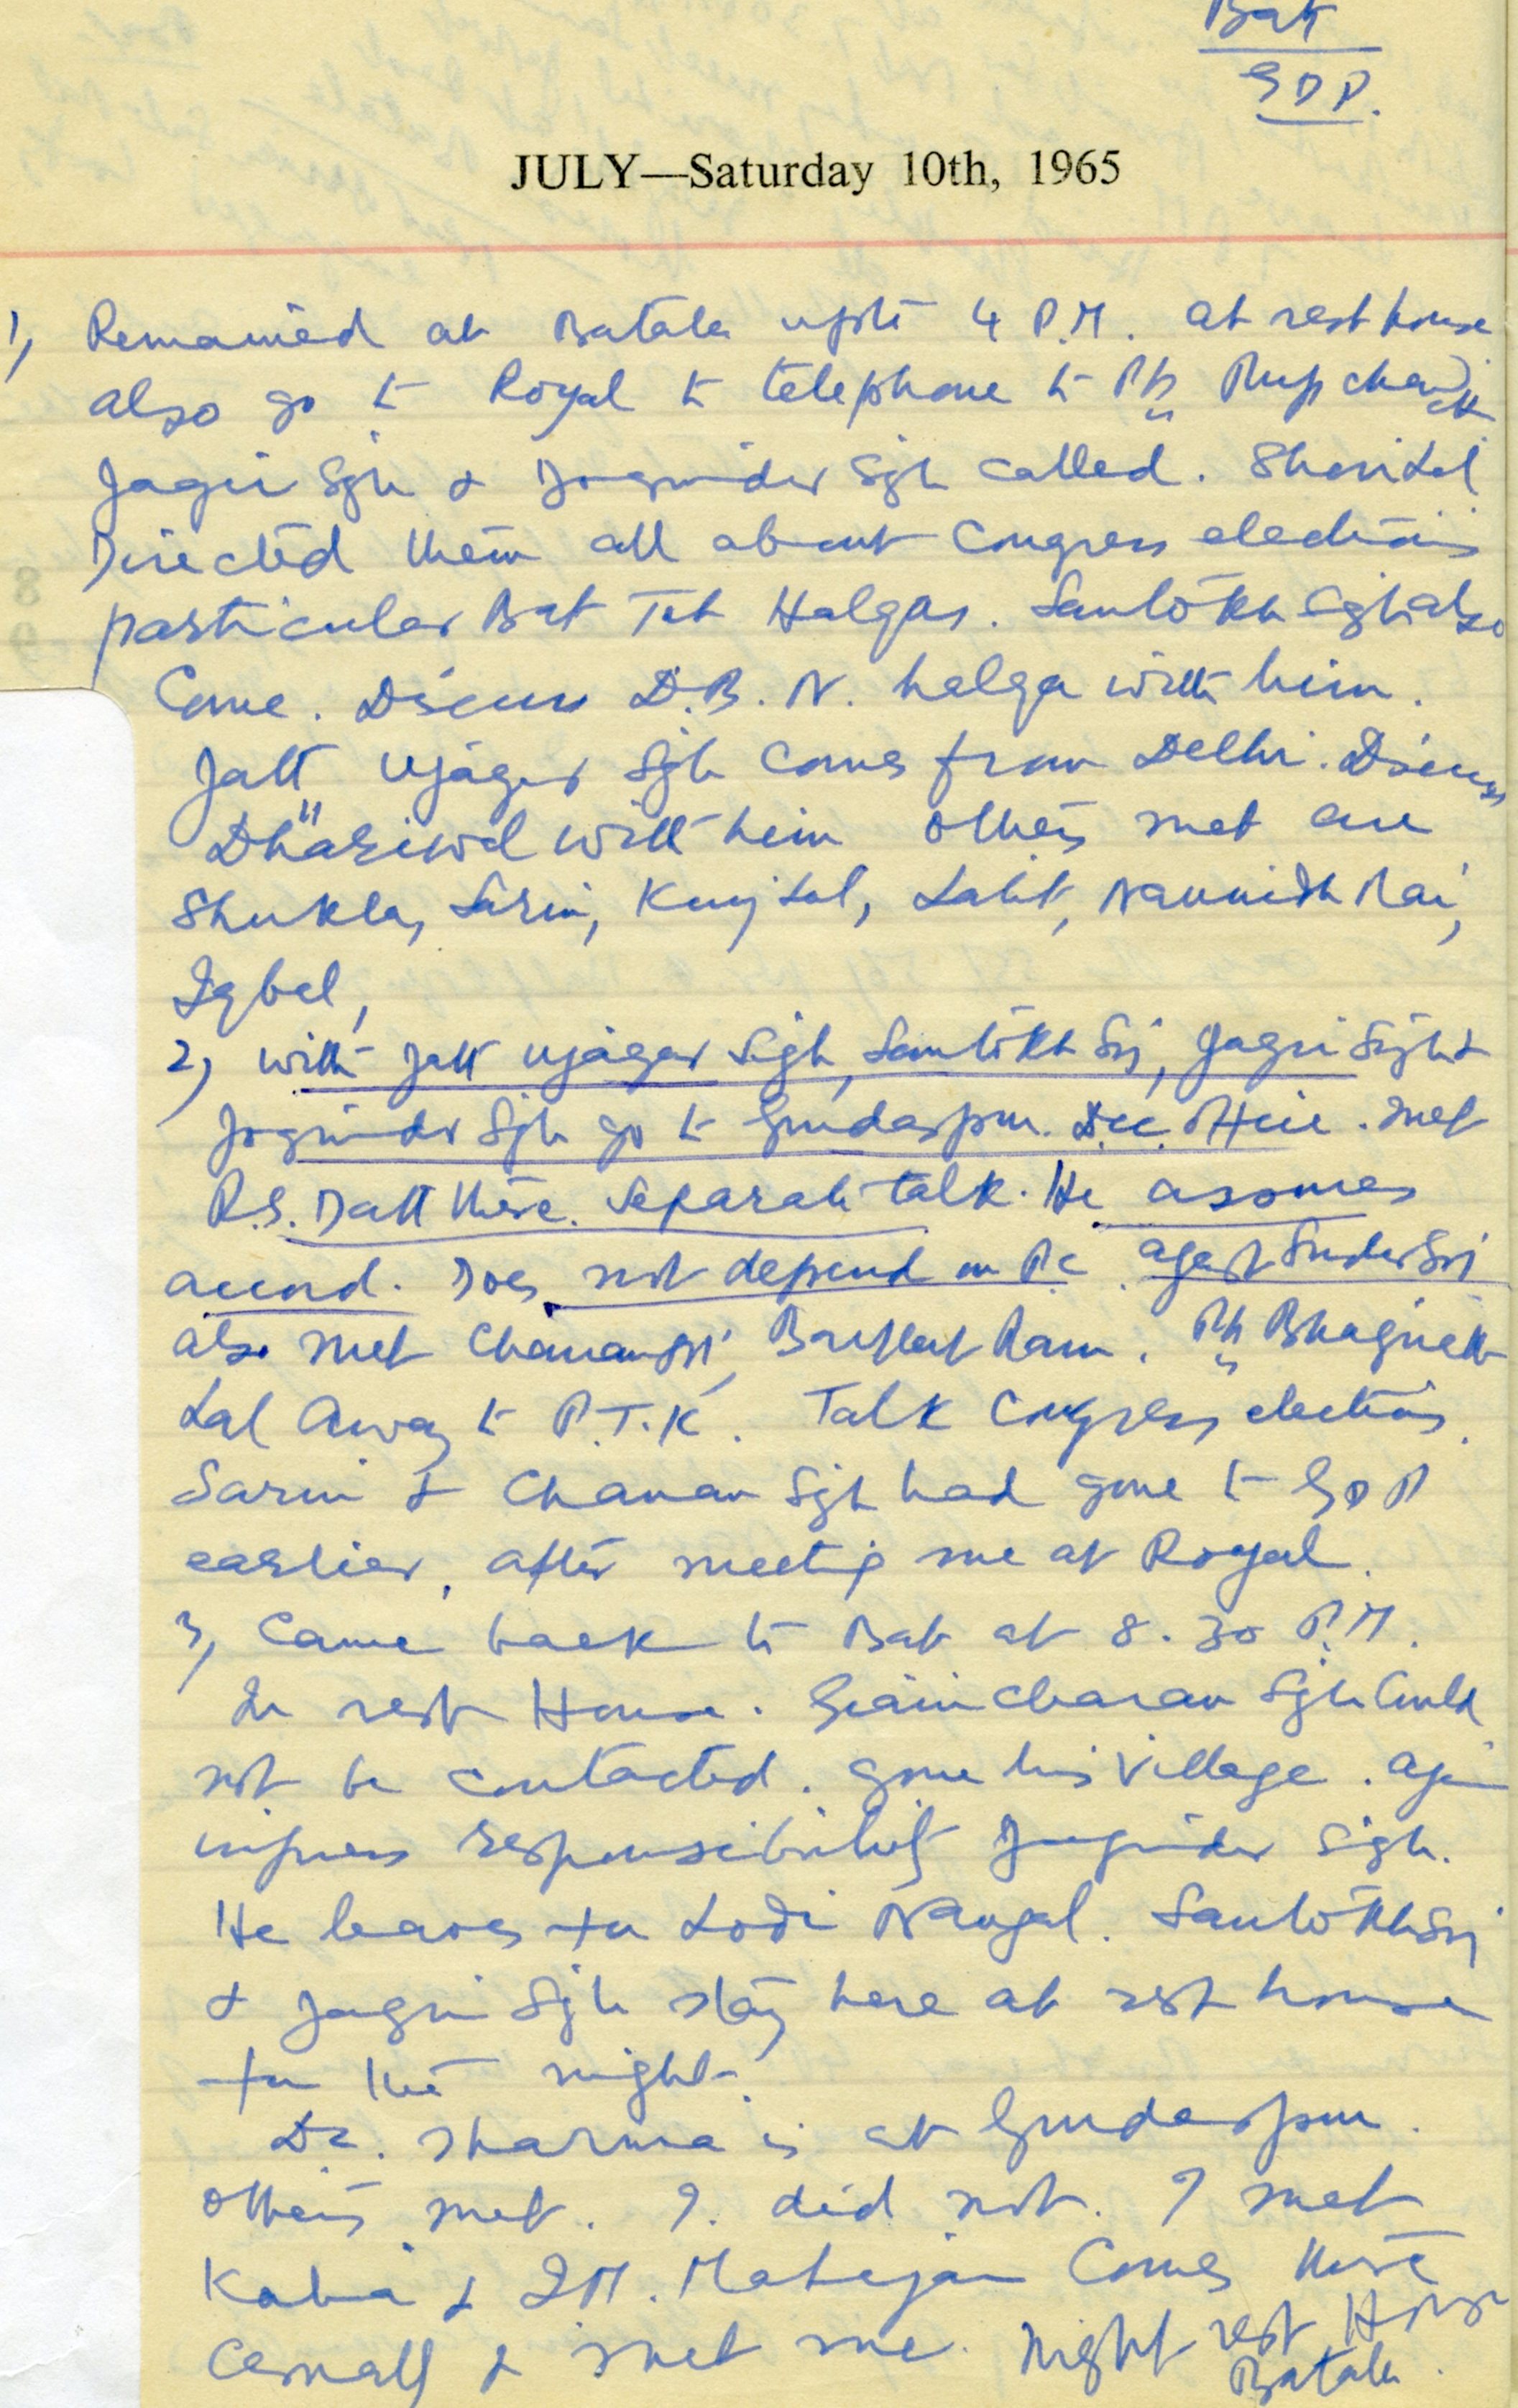 Bat
GDP.
JULY—Saturday 10th, 1965
1) Remained at Batala upto 4 P.M. at rest house
also go to Royal to telephone to Pt. Rup chand
Jagir Sgh & Joginder Sgh called. Shorilal
Directed them all about Congress elections
particular Bat Teh Halqas. Santokh Sgh also
Come. Discuss D.B.N. halqa with him.
Jatt Ujagar Sgh Comes from Delhi. Discuss
Dhariwal with him others met are
Shukla, Sarin, Kunj Lal, Lalit, Naunidh Rai,
Iqbal,
2) with Jatt Ujagar Sigh, Santokh Sij, Jagir Sigh &
Joginder Sgh go to Gurdaspur. D.C.C. Office. met
R.S. Datt there. Separate talk. He assumes
accord. Does not depend on agest Sunder Sij
also met Chanan Sij, Ram. Pt. Bhagirath
Lal Away to P.T.K. Talk Congress elections.
Sarin & Chanan Sgh had gone to GDP
earlier, after meetig me at Royal.
3) Came back to Bat at 8.30 P.M.
In rest House. Giani Charan Sgh Could
not be contacted. gone his village. Again
impress responsibility Joginder Sigh.
He leaves for Lodi Nangal. Santokh Sij
& Jagir Sgh stay here at rest house
for the night.
Dr. Sharma is at Gurdaspur.
others met. I did not. I met
Kalia & I.M. Mahajan Comes there
Casually & met me. Night rest House
Batala.